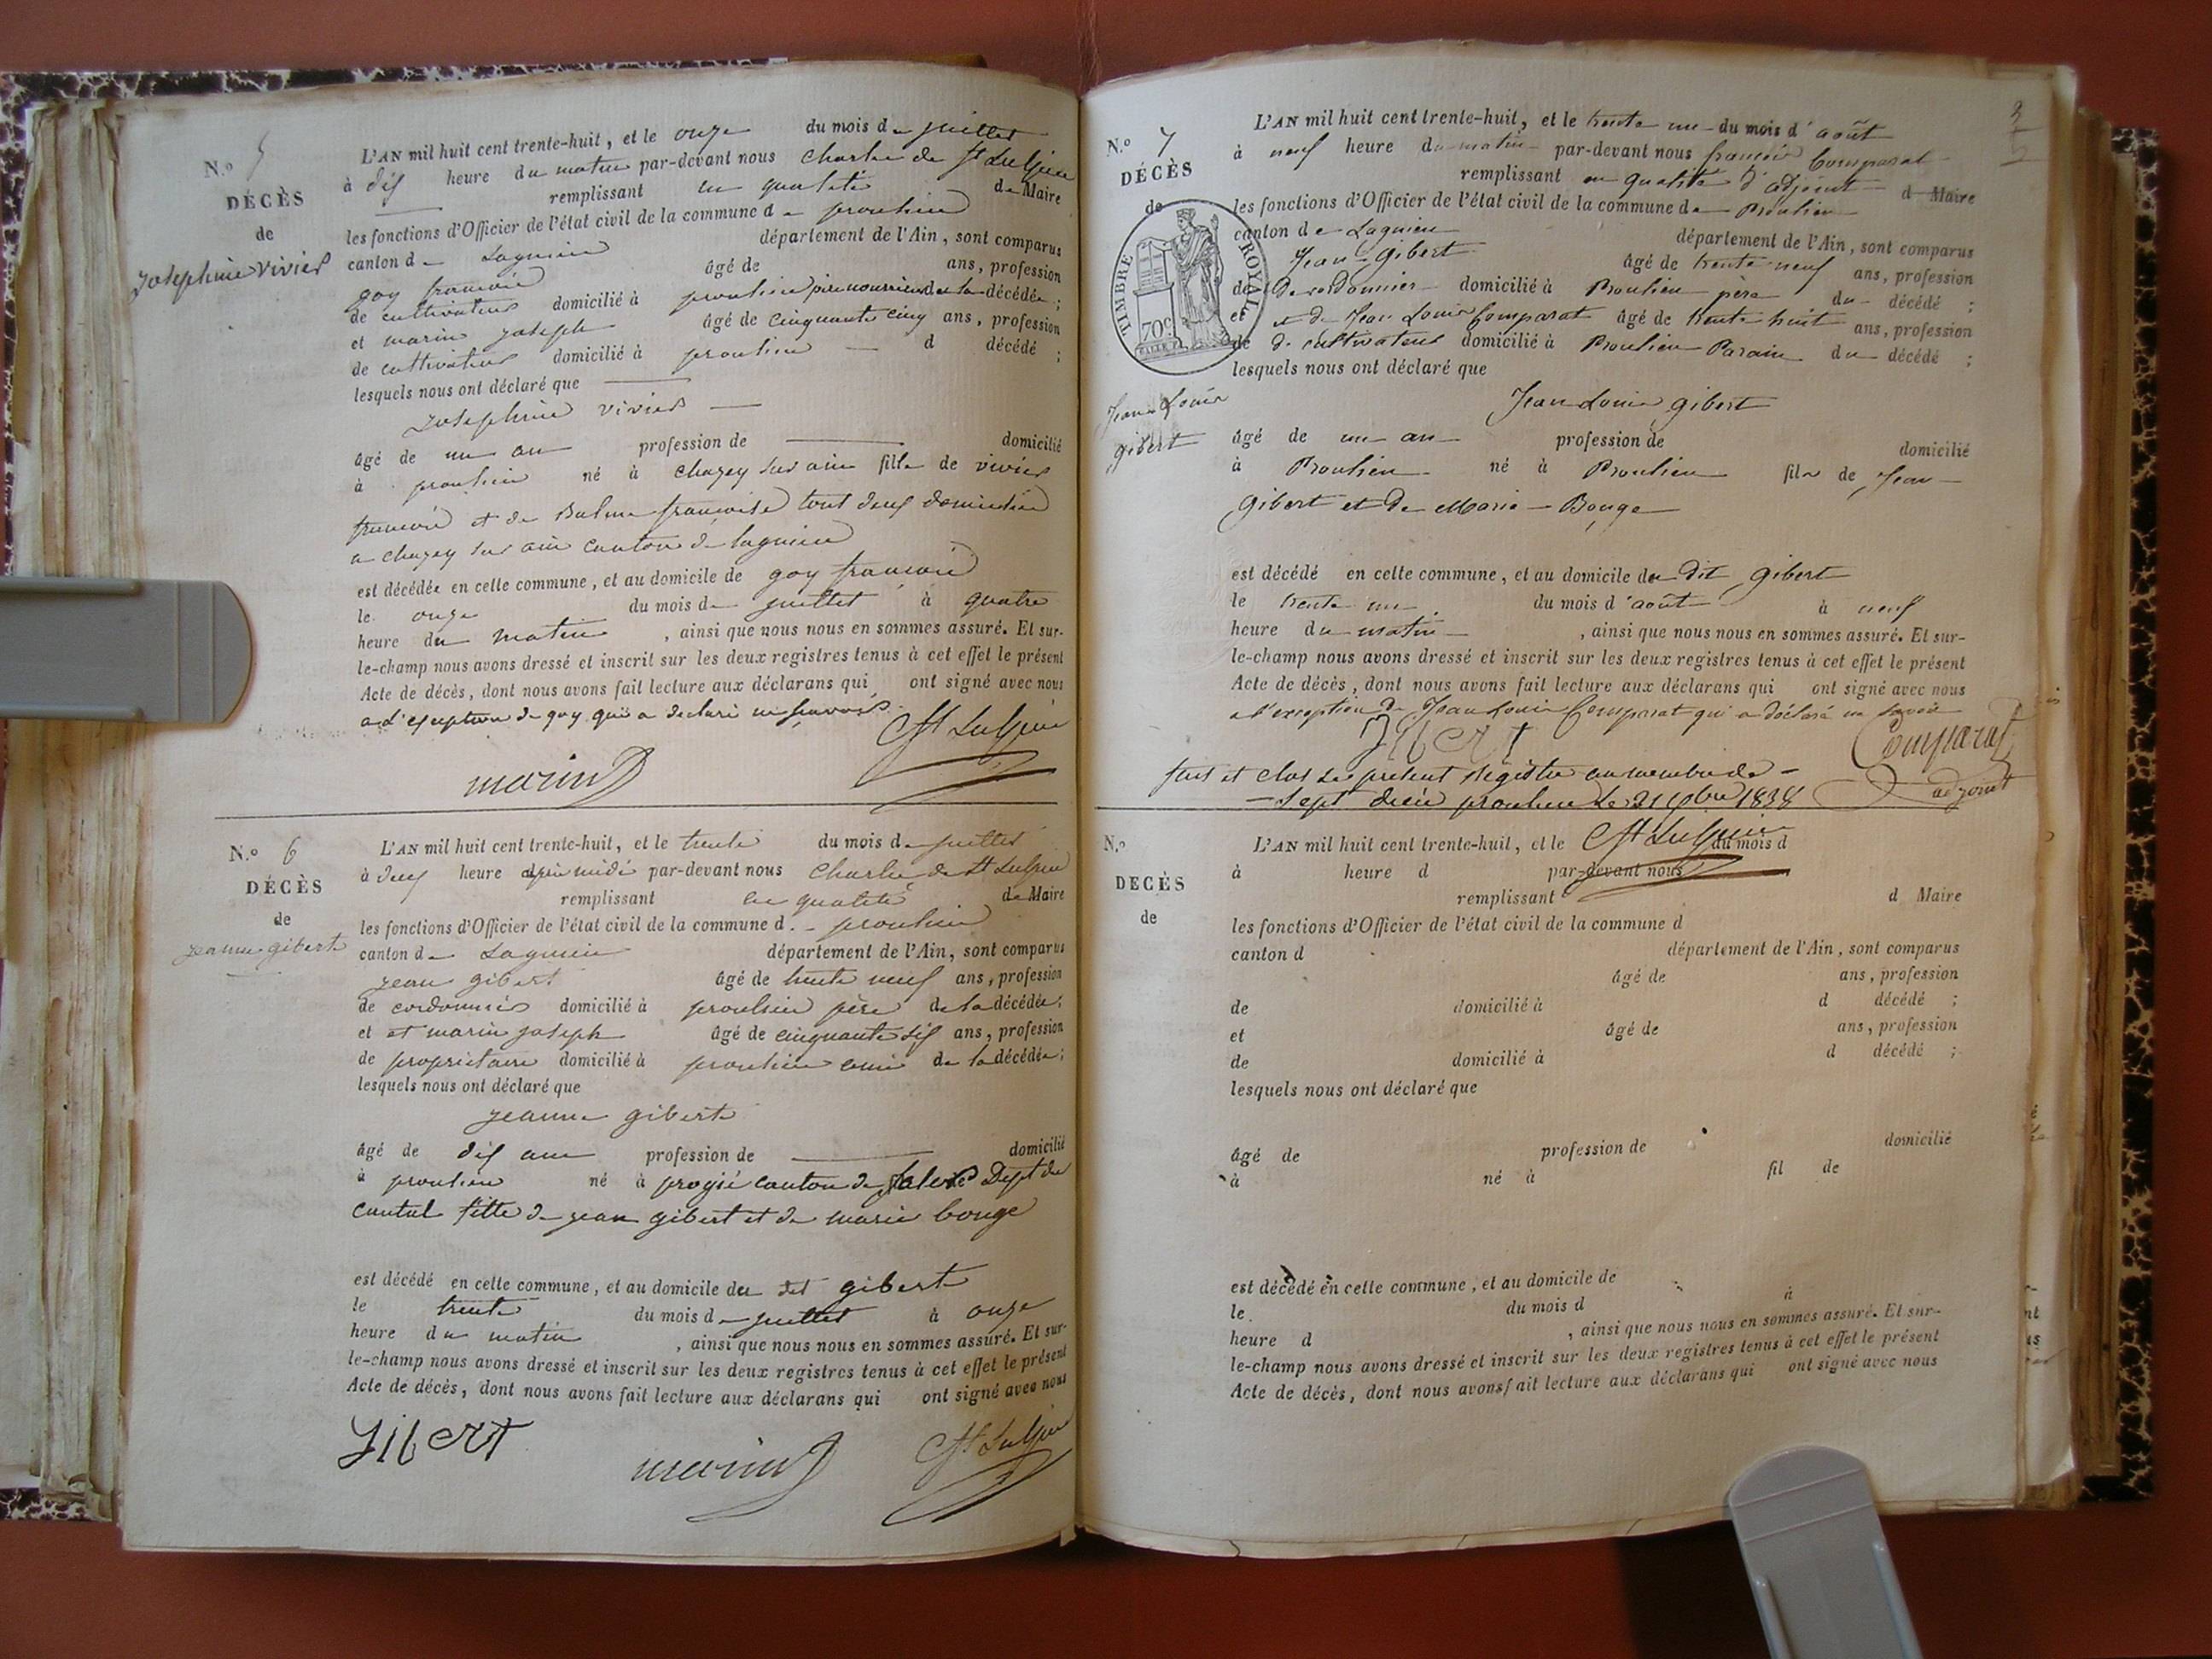 N.o 5
DÉCÈS
de
Josephine vivier
L'AN mil huit cent trente-huit, et le onze du mois de juillet
à dix heure du matin par-devant nous Charles de St Sulpice
remplissant en qualité de Maire
les fonctions d'Officier de l'état civil de la commune de proulieu
canton de Lagnieu département de l'Ain, sont comparus
goy francois âgé de ans, profession
de cultivateur domicilié à proulieu père nourricier de la décédée;
et marin joseph âgé de cinquante cinq ans, profession
de cultivateur domicilié à proulieu d décédé ;
lesquels nous ont déclaré que
Josephine vivier
âgé de un an profession de domicilié
à proulieu né à chazey sur ain fille de vivier
francois et de Balme francoise tout deux domicilié
a chazey sur ain canton de lagnieu
est décédée en cette commune, et au domicile de goy francois
le onze du mois de juillet à quatre
heure du matin , ainsi que nous nous en sommes assuré. Et sur-
le-champ nous avons dressé et inscrit sur les deux registres tenus à cet effet le présent
Acte de décès, dont nous avons fait lecture aux déclarans qui ont signé avec nous
a l'exception de goy qui a declaré ne savoir.
marin
Ch St Sulpice
N.o 6
DÉCÈS
de
jeanne gibert
L'AN mil huit cent trente-huit, et le trente du mois de juillet
à deux heure après midi par-devant nous Charles de St Sulpice
remplissant en qualité de Maire
les fonctions d'Officier de l'état civil de la commune d. proulieu
canton de Lagnieu département de l'Ain, sont comparus
jean gibert âgé de trente neuf ans, profession
de cordonnier domicilié à proulieu père de la décédée;
et et marin joseph âgé de cinquante six ans, profession
de proprietaire domicilié à proulieu ami de la décédée;
lesquels nous ont déclaré que
jeanne gibert
âgé de dix ans profession de domicilié
à proulieu né à canton de Dept du
cantal fille de jean gibert et de marie bouge
est décédé en cette commune, et au domicile du dit gibert
le trente du mois de juillet à onze
heure du matin , ainsi que nous nous en sommes assuré. Et sur-
le-champ nous avons dressé et inscrit sur les deux registres tenus à cet effet le présent
Acte de décès, dont nous avons fait lecture aux déclarans qui ont signé avec nous
gibert
marin
Ch St Sulpice
N.o 7
DÉCÈS
de
TIMBRE ROYAL
70c
Jean Louis
gibert
L'AN mil huit cent trente-huit, et le trente un du mois d'août
à neuf heure du matin par-devant nous françois Comparat
remplissant en qualité d'adjoint d Maire
les fonctions d'Officier de l'état civil de la commune de Proulieu
canton de Lagnieu département de l'Ain, sont comparus
Jean Gibert âgé de trente neuf ans, profession
de de cordonnier domicilié à Proulieu père du décédé ;
et et de Jean Louis Comparat âgé de trente huit ans, profession
de de cultivateur domicilié à Proulieu Parain du décédé ;
lesquels nous ont déclaré que
Jean Louis gibert
âgé de un an profession de domicilié
à Proulieu né à Proulieu fils de Jean
Gibert et de Marie Bouge
est décédé en cette commune, et au domicile du dit Gibert
le trente un du mois d'août à neuf
heure du matin , ainsi que nous nous en sommes assuré. Et sur-
le-champ nous avons dressé et inscrit sur les deux registres tenus à cet effet le présent
Acte de décès, dont nous avons fait lecture aux déclarans qui ont signé avec nous
a l'exception de Jean Louis Comparat qui a déclaré ne savoir
gibert
Comparat
adjoint
et clos le present registre au nombre de
sept décès proulieu le 31 1838
Ch St Sulpice
N.o
DECÈS
de
L'AN mil huit cent trente-huit, et le du mois d
à heure d par-devant nous
remplissant d Maire
les fonctions d'Officier de l'état civil de la commune d
canton d département de l'Ain, sont comparus
âgé de ans, profession
de domicilié à d décédé ;
et âgé de ans, profession
de domicilié à d décédé ;
lesquels nous ont déclaré que
âgé de profession de domicilié
à né à fil de
est décédé en cette commune, et au domicile de
le du mois d à
heure d , ainsi que nous nous en sommes assuré. Et sur-
le-champ nous avons dressé et inscrit sur les deux registres tenus à cet effet le présent
Acte de décès, dont nous avons fait lecture aux déclarans qui ont signé avec nous